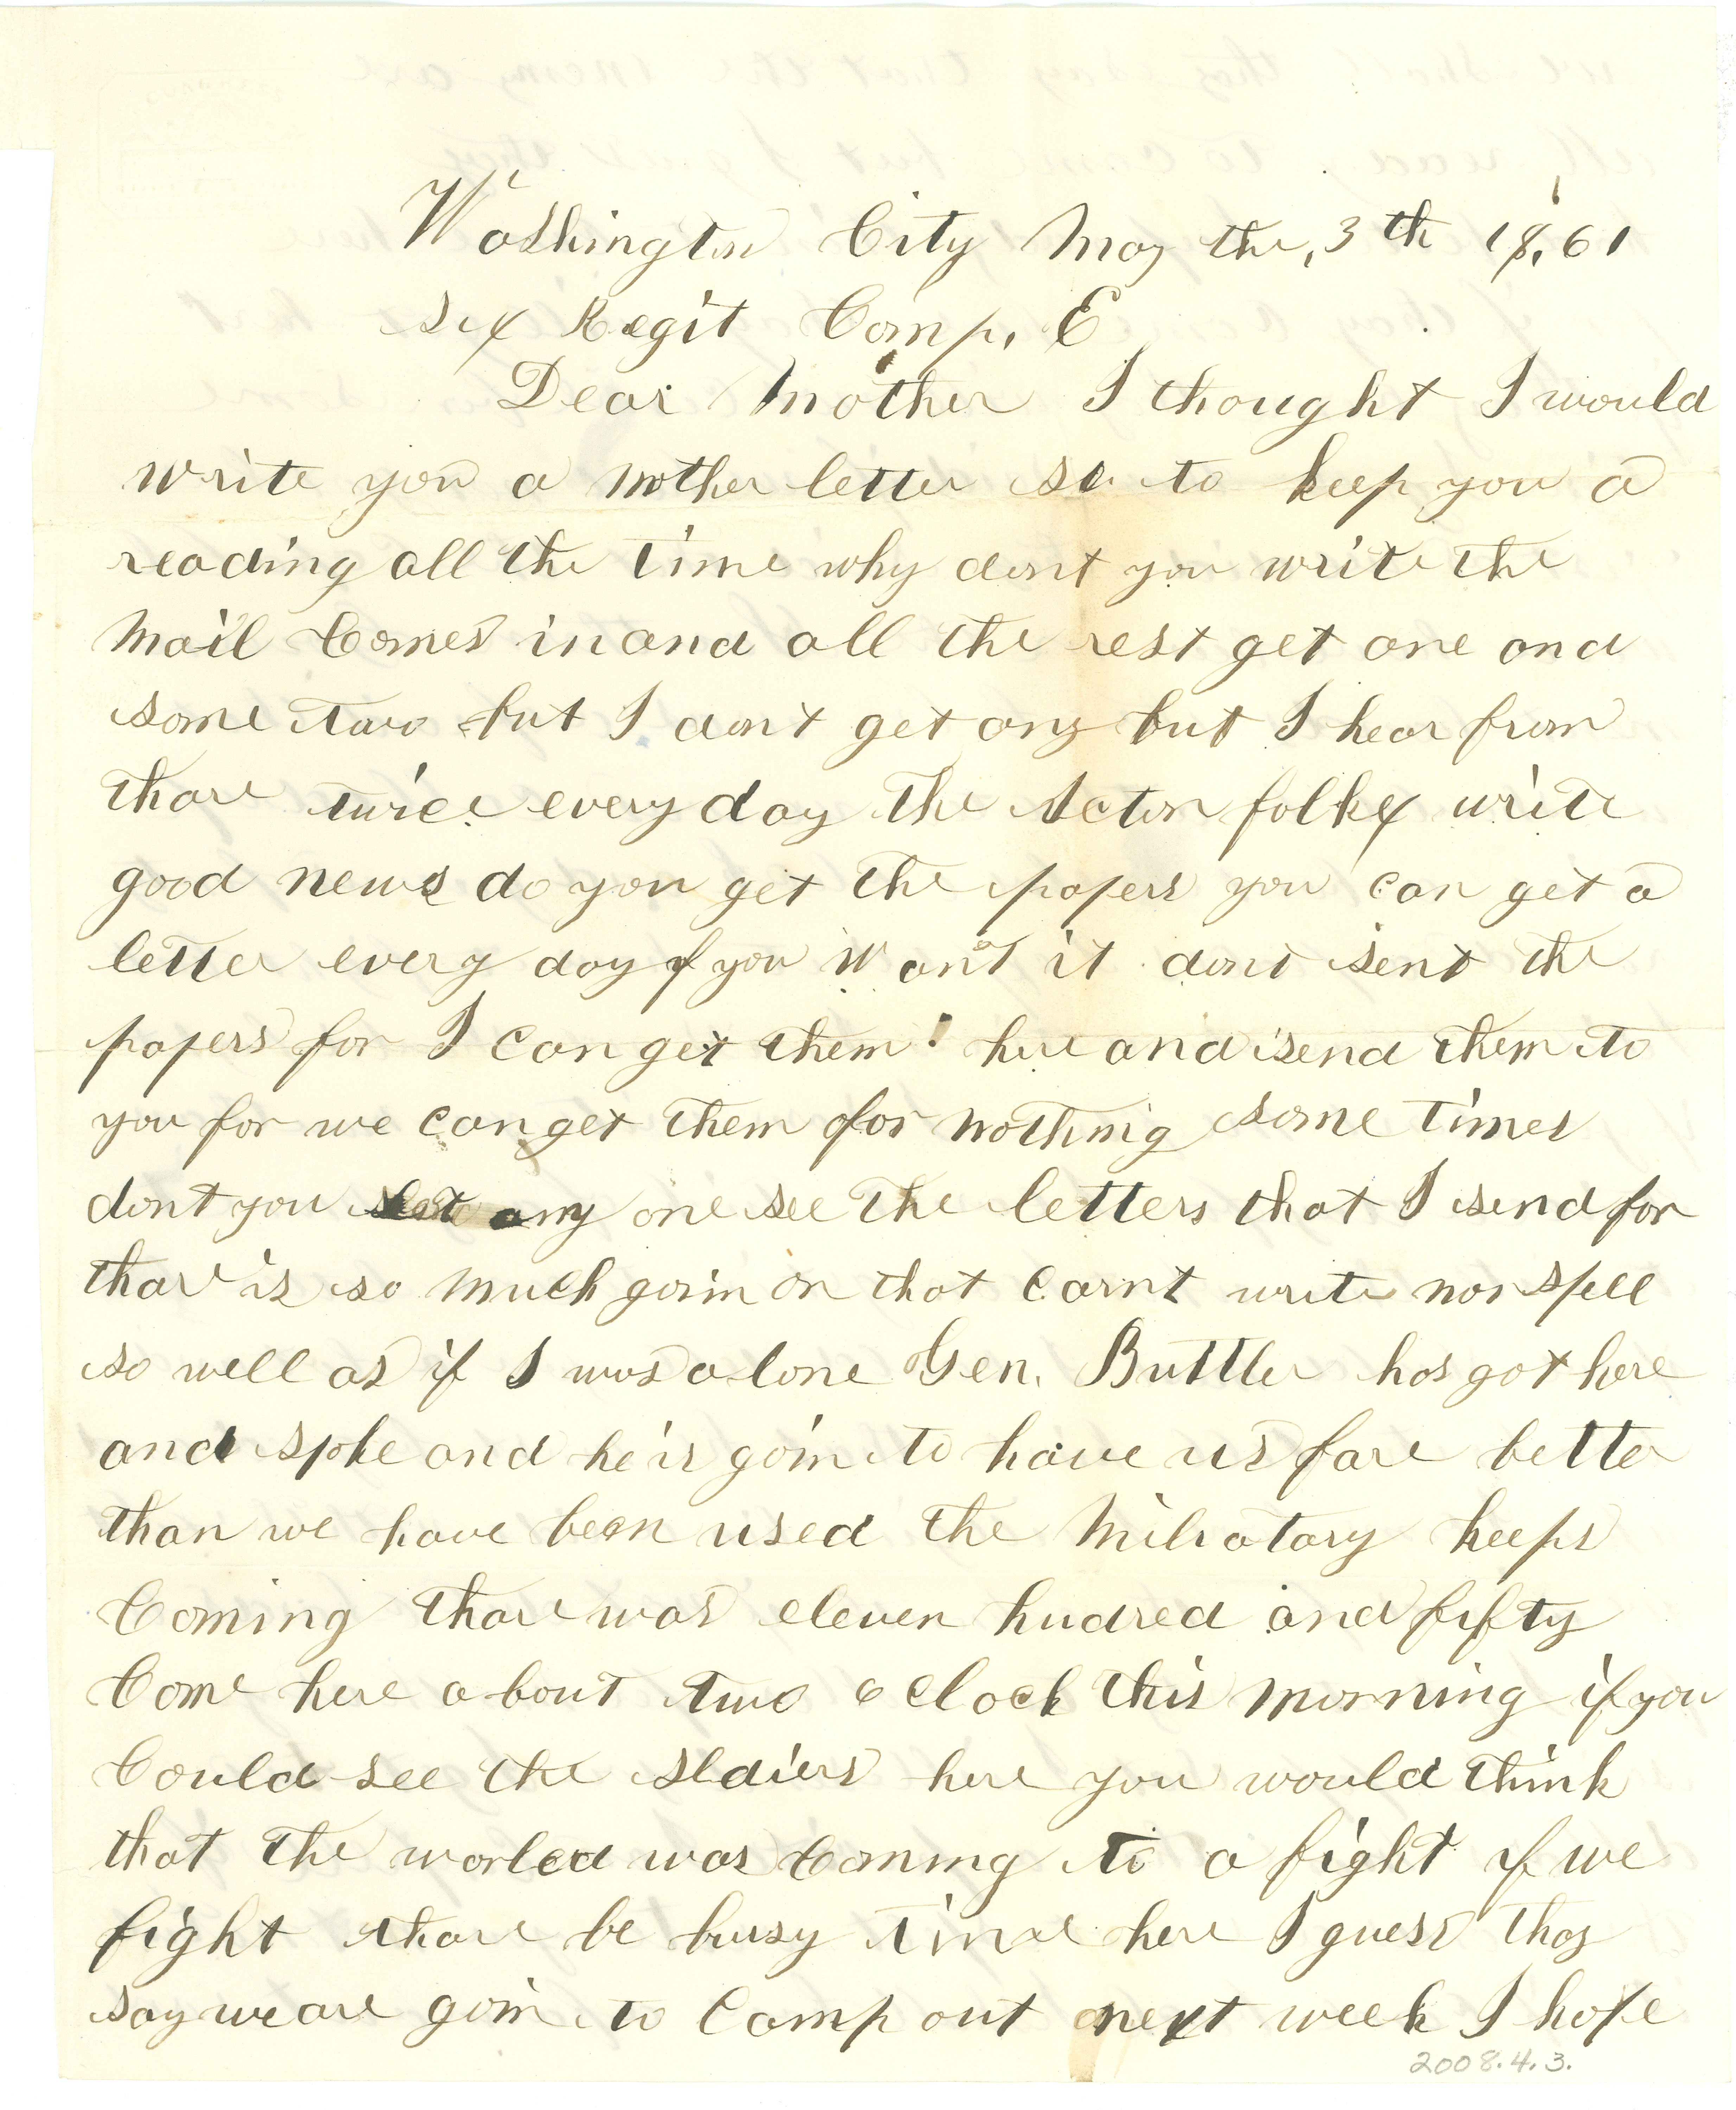 Washington City May the, 3th 18,61
six Regit Comp, E
Dear Mother I thought I would
write you a nother letter so to keep you a
reading all the time why dont you write the
mail Comes in and all the rest get one and
some two but I dont get any but I hear from
thare twice every day the Acton folkes write
good news do you get the papers you can get a
letter every day if you want it dont sent the
papers for I can get them here and send them to
you for we can get them for nothing some times
dont you let any one see the letters that I send for
thare is so much goin on that carnt write nor spell
so well as if I was alone Gen. Buttler has got here
and spke and he is goin to have us fare better
than we have been used the Milratary keeps
Coming thare was eleven hudred and fifty
Come here about two o clock this morning if you
Could see the sldiers here you would think
that the worled was Coming to a fight if we
fight thare be busy time here I guess thay
say we are goin to Camp out next week I hope
2008.4.3.